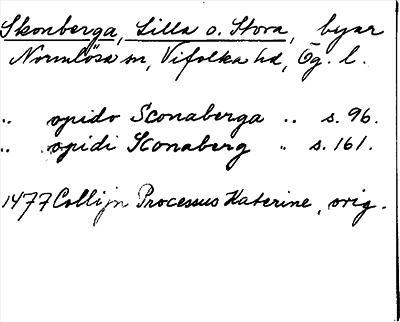 Skonberga, Lilla o. Stora, byar
Normlösa sn, Vifolka hd, Ög. l.
" opido Sconaberga " s. 96.
" opidi Sconaberg " s. 161.
1477 Collijn Processus Katerine, orig.